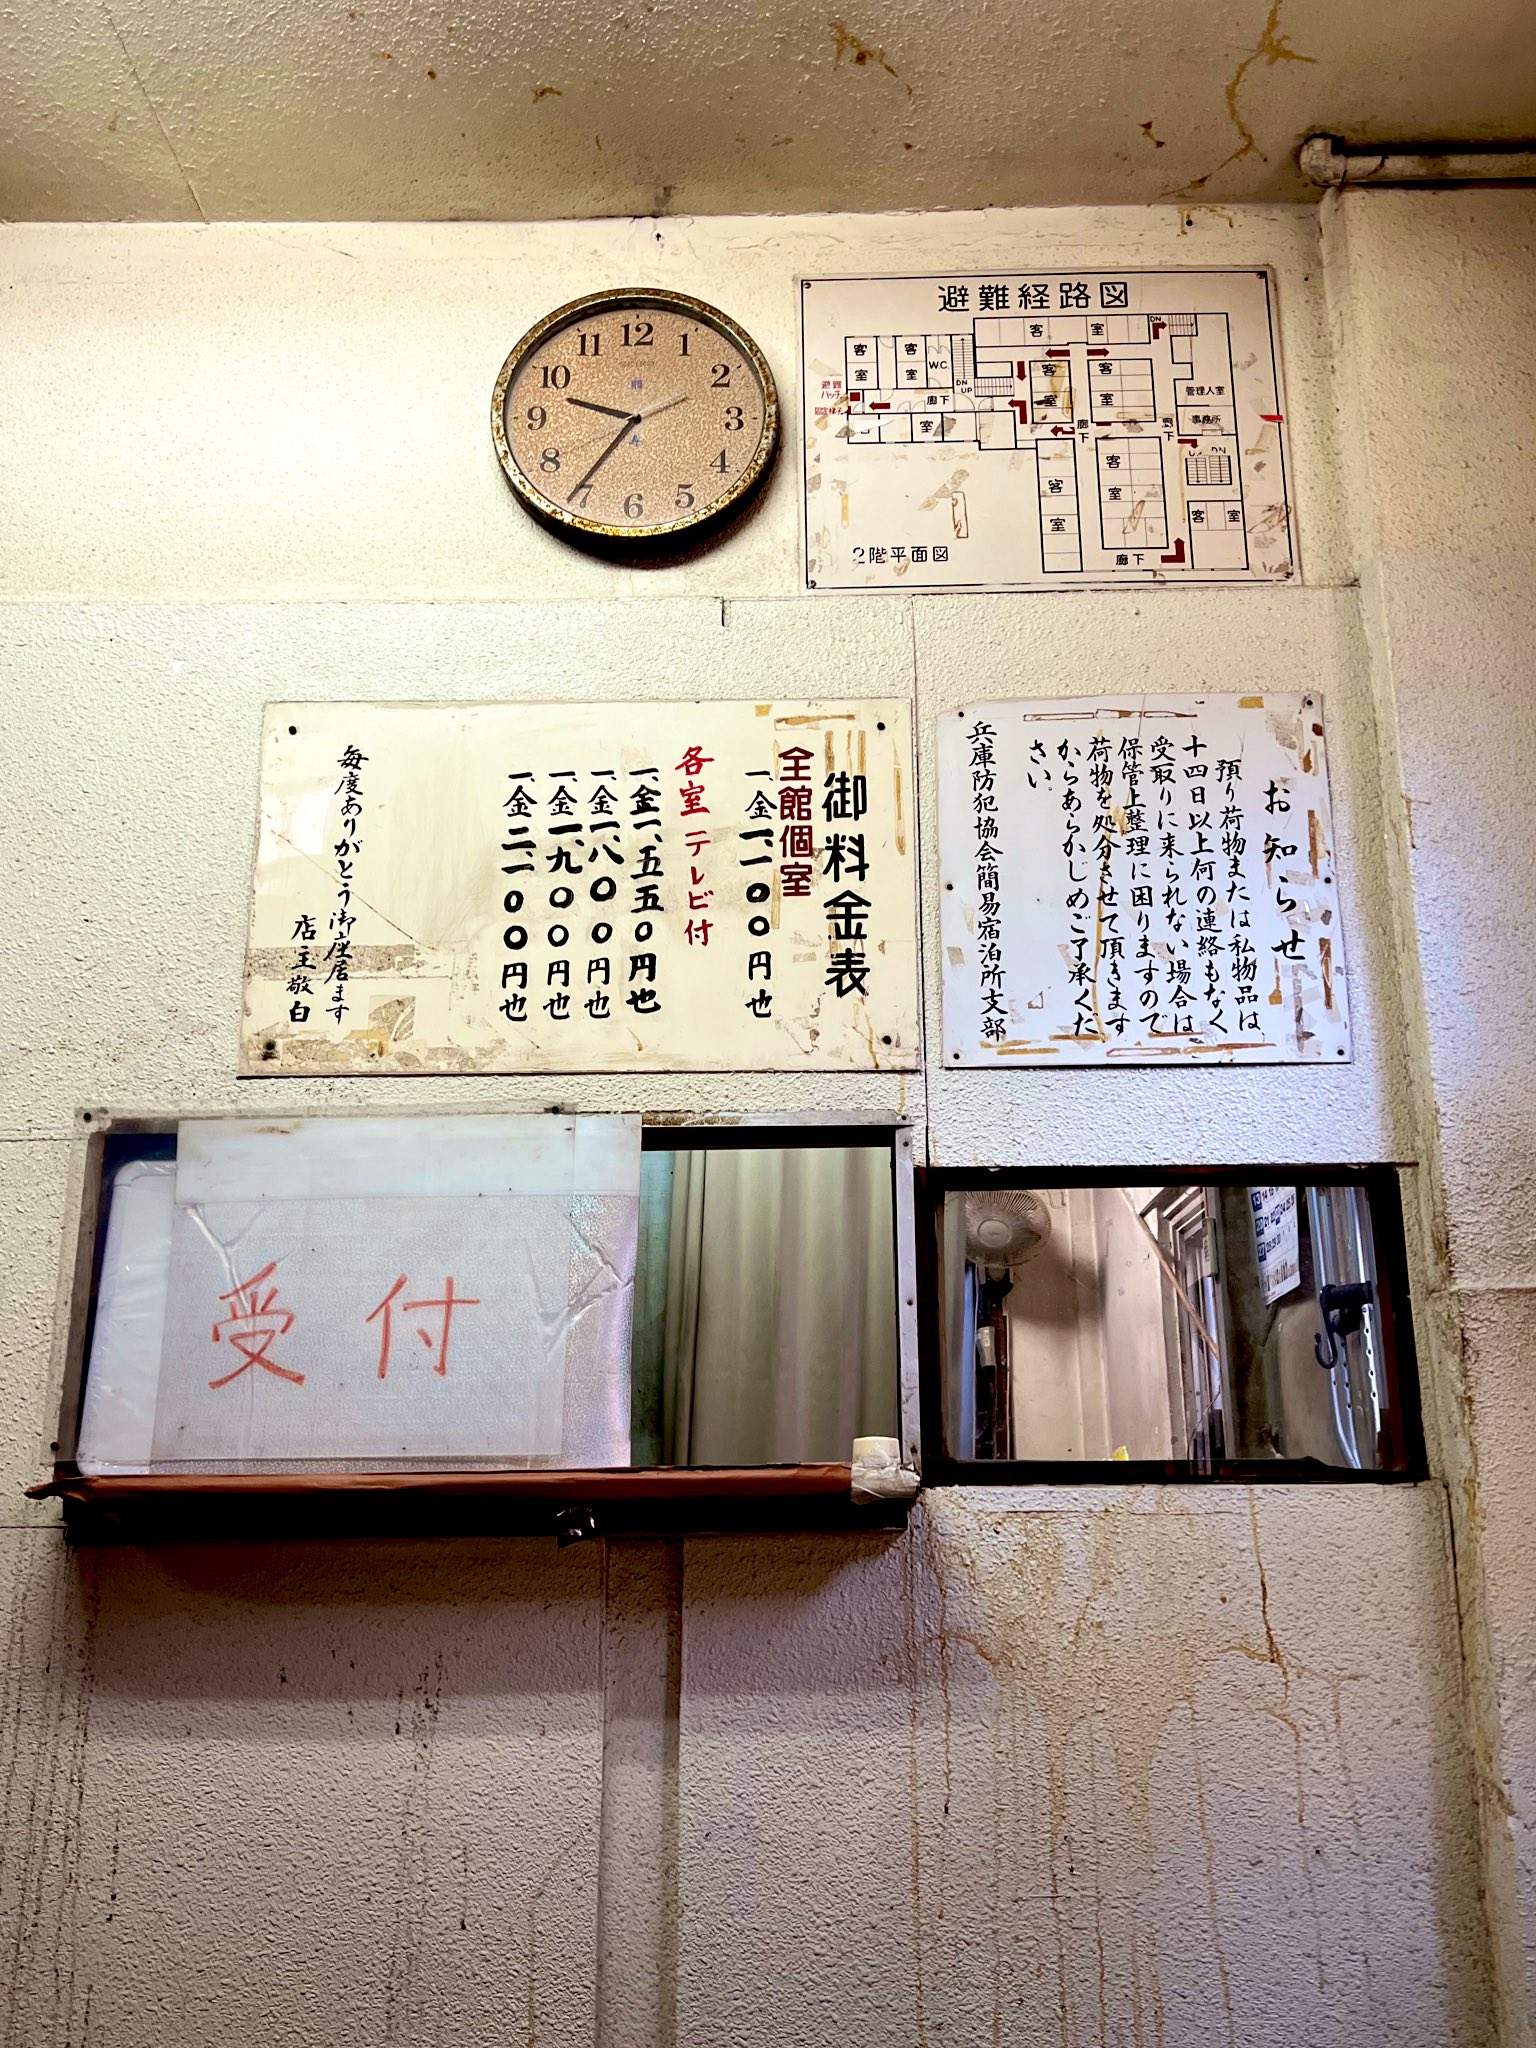 12
1
2
3
4
5
6
7
8
9
10
11
SEIKO
避難経路図
客室
客室
客室
W.C.
DN
UP
DN
客室
客室
避難
ハッチ
廊下
室
管理人室
事務所
廊下
廊下
DN
客室
客室
客室
廊下
2階平面図
御料金表
全館個室
一、金一、一〇〇円也
各室テレビ付
一、金一、五五〇円也
一、金一、八〇〇円也
一、金一、九〇〇円也
一、金二、一〇〇円也
毎度ありがとう御座居ます
店主敬白
お知らせ
預り荷物または私物品は、
十四日以上何の連絡もなく
受取りに来られない場合は
保管上整理に困りますので
荷物を処分させて頂きます
からあらかじめご了承くだ
さい。
兵庫防犯協会簡易宿泊所支部
受付